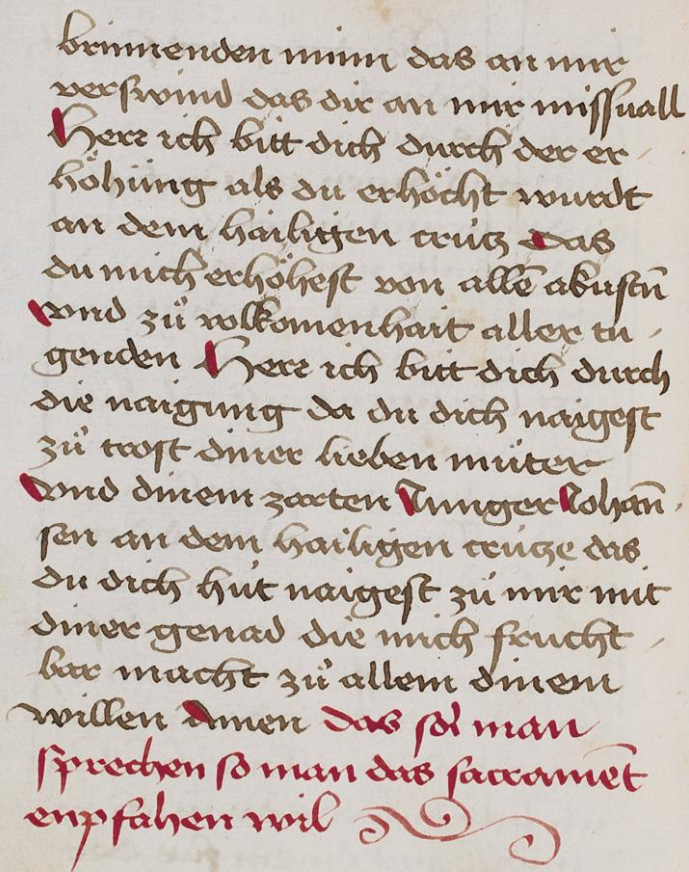 brinnenden minn das an mir
verswind das dir an mir missuall
Herr ich bitt dich durch der er
höhung als du erhöcht wurdt
an dem hailigen crütz das
du mich erhöhest von allē akustn̄
vnd zů volkomenhait aller tu
genden Herr ich bitt dich durch
die naigung da du dich naigest
zů trost diner lieben můter
vnd dinem zarten Junger Johan̄
sen an dem hailigen crütze das
du dich hüt naigest zů mir mit
diner genad die mich frucht
bar macht zů allem dinem
willen Amen das sol man
sprechen so man das sacramēt
enpfahen wil